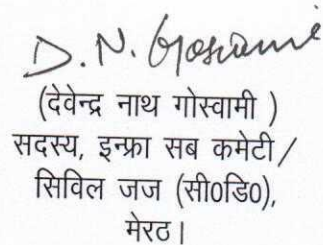 D. N. Goswami
(देवेन्द्र नाथ गोस्वामी )
सदस्य, इन्फ्रा सब कमेटी/
सिविल जज (सी0डि0),
मेरठ।